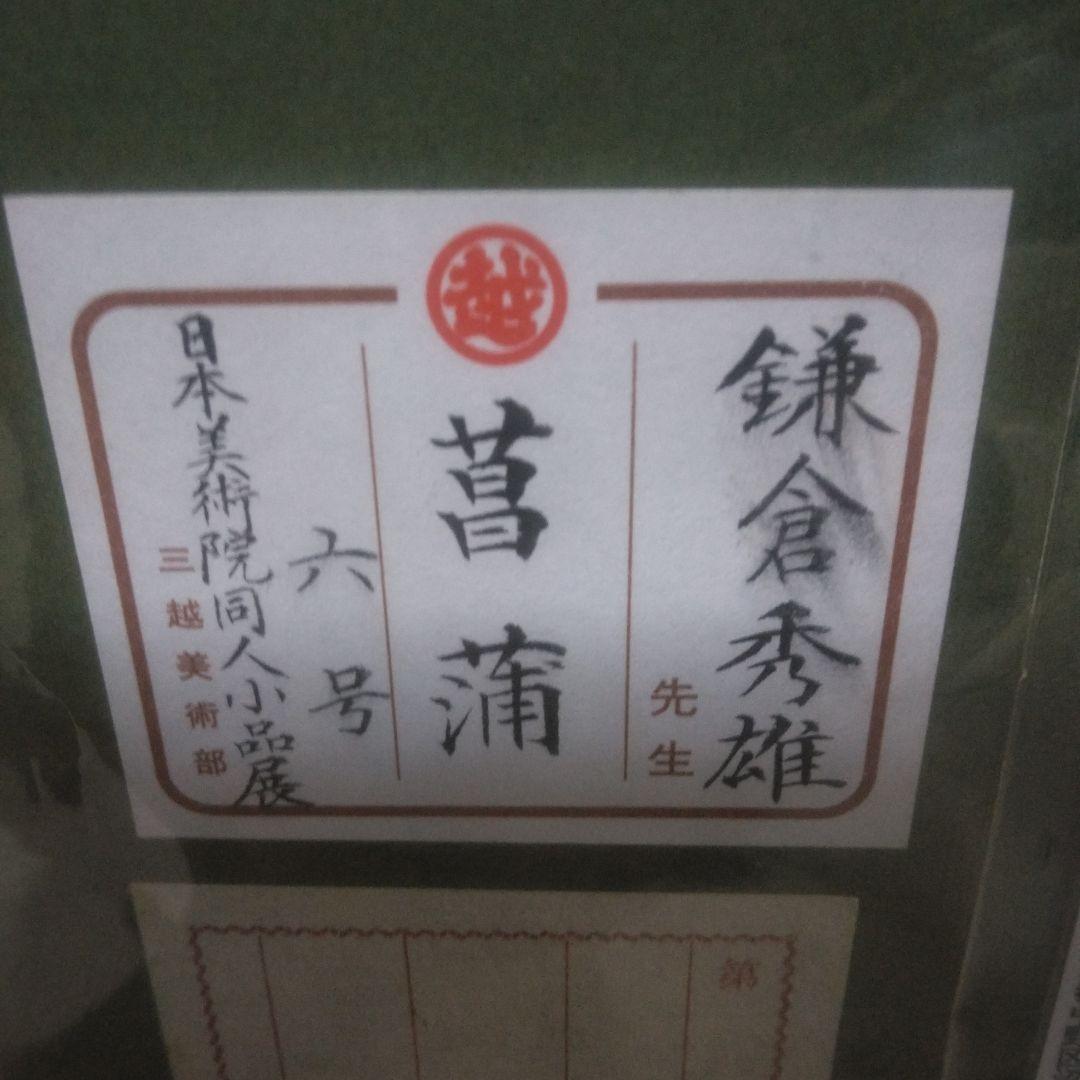 越
鎌倉秀雄
先生
菖蒲
六号
日本美術院同人小品展
三越美術部
第